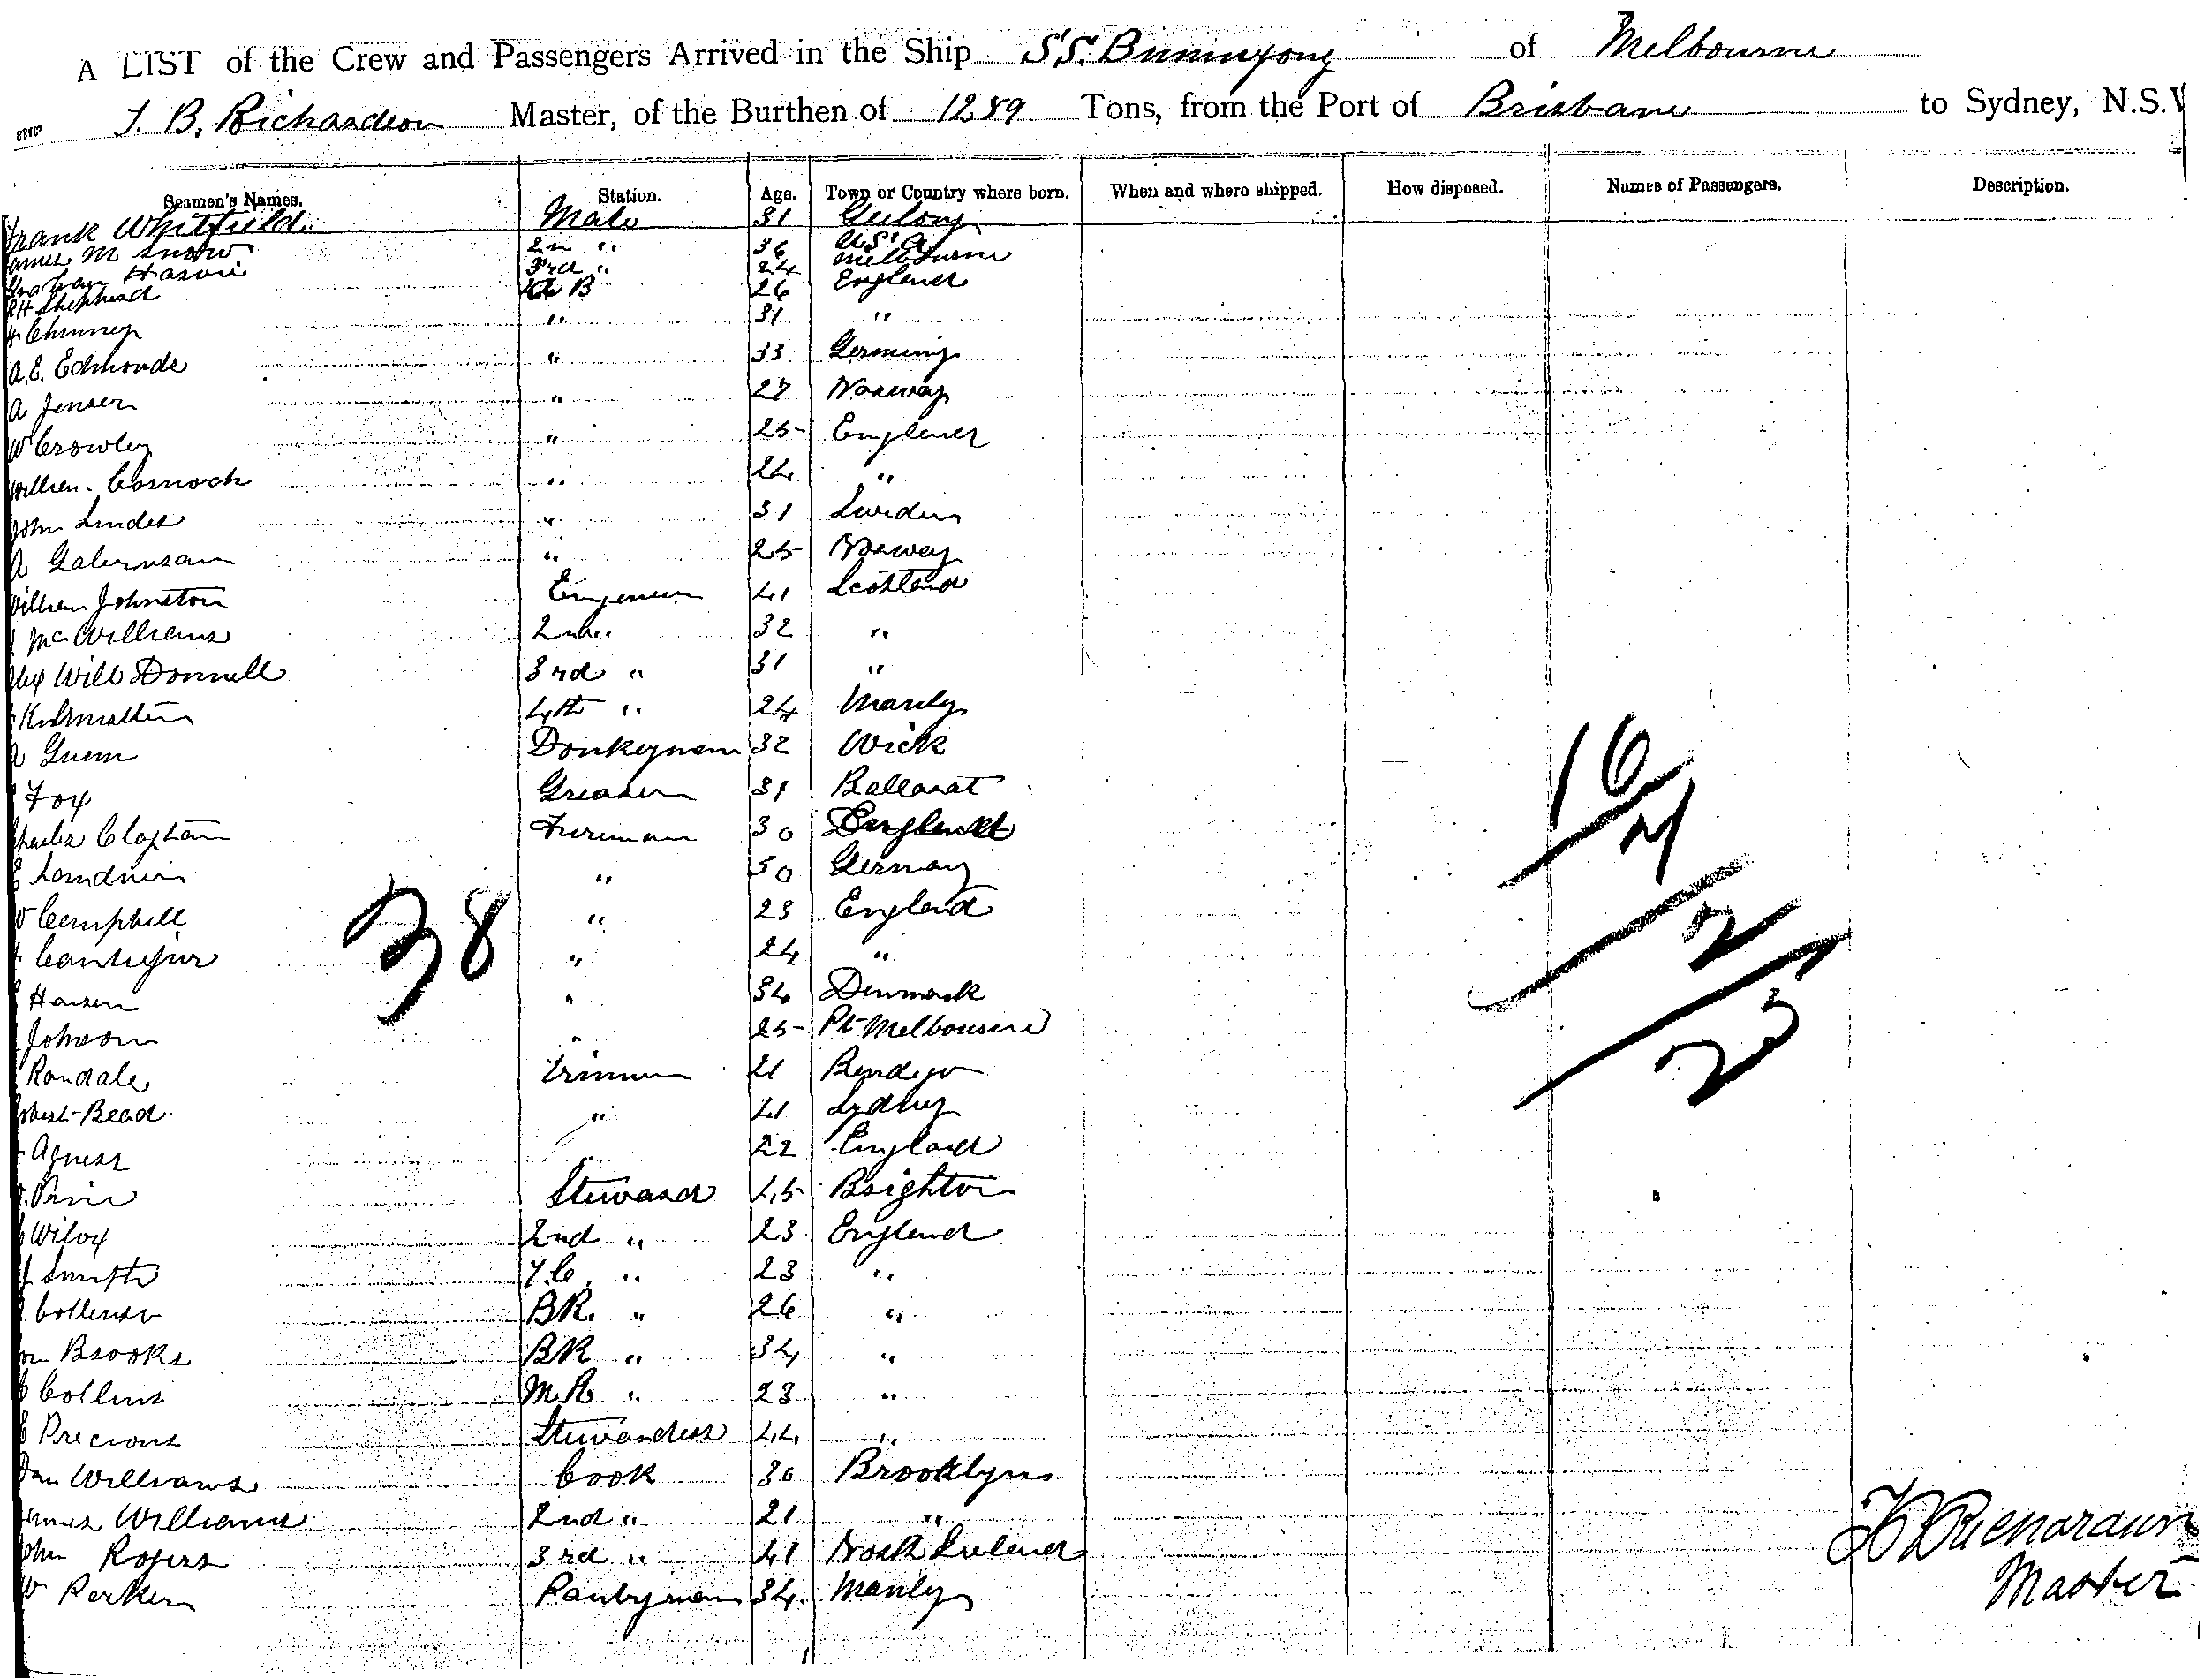 A LIST of the Crew and Passengers Arrived in the Ship S.S. Buninyong of Melbourne
T. B. Richardson Master, of the Burthen of 1289 Tons, from the Port of Brisbane to Sydney, N.S.
Seamen's Names. Station. Age. Town or Country where born. When and where shipped. How disposed. Names of Passengers. Description.
Frank Whitfield Mate 31 Geelong
James M Snow 2n " 36 U.S.A
Graham 3rd " 24 Melbourne
Shepherd AB 26 England
Chinnery " 31 "
A.E. Edmonds " 33 Germany
A Jensen " 27 Norway
W Crowley " 25 England
William Cornock " 24 "
John Linder " 31 Sweden
A " 25 Norway
William Johnston Engineer 41 Scotland
McWilliams 2nd " 32 "
Alex Will Donnell 3rd " 31 "
4th " 24 Manly
Gunn Donkeyman 32 Wick
Fox Greaser 31 Ballarat
Charles Clapham Fireman 30 England
" 50 Germany
Campbell " 23 England
" 24 "
Hansen " 34 Denmark
Johnson " 25 Pt Melbourne
Randale Trimmer 21 Bendigo
Robert Read " 41 Sydney
Agness " 22 England
Prin Steward 45 Brighton
Wilox 2nd " 23 England
J Smith F.C. " 23 "
BR. " 26 "
Brooks BR " 34 "
Collins M.R " 23 "
E Precious Stewardess 44 "
Williams Cook 30 Brooklyn
James Williams 2nd " 21 "
John Rogers 3rd " 41 North Ireland
W Parker Pantryman 34 Manly
38
16
7
2
25
T B Richardson
Master